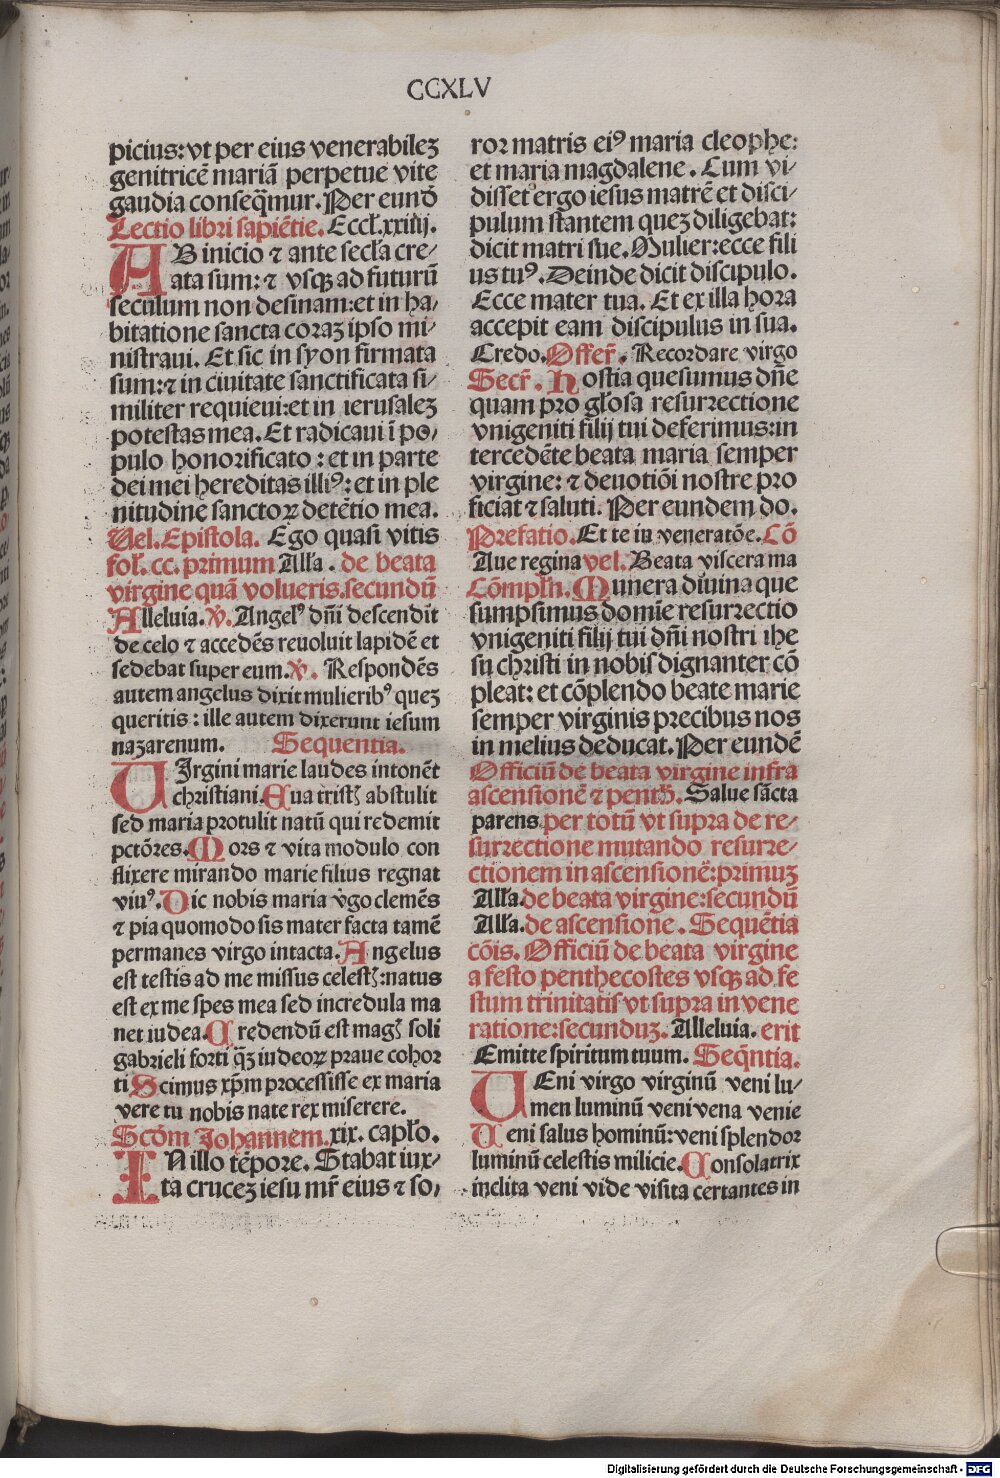 CCXLV
picius: vt per eius venerabilez
genitricē mariā perpetue vite
gaudia conseq̄mur. Per eund̄
Lectio libri sapiētie. Eccł. xxiiij.
AB inicio ⁊ ante secła cre/
ata sum: ⁊ vsqꝫ ad futurū
seculum non desinam: et in ha/
bitatione sancta coraꝫ ipso mi/
nistraui. Et sic in syon firmata
sum: ⁊ in ciuitate sanctificata si/
militer requieui: et in ierusaleꝫ
potestas mea. Et radicaui ī po/
pulo honorificato : et in parte
dei mei hereditas illiꝰ: et in ple
nitudine sanctoꝝ detētio mea.
Vel. Epistola. Ego quasi vitis
foł. cc. primum Ałła . de beata
virgine quā volueris. secundū
Alleluia. ℣. Angelꝰ dn̄i descendit
de celo ⁊ accedēs reuoluit lapidē et
sedebat super eum. ℣. Respondēs
autem angelus dixit mulieribꝰ queꝫ
queritis : ille autem dixerunt iesum
nazarenum. Sequentia.
VIrgini marie laudes intonēt
christiani. Eua tristꝭ abstulit
sed maria protulit natū qui redemit
pctōres. Mors ⁊ vita modulo con
flixere mirando marie filius regnat
viuꝰ. Dic nobis maria v̊go clemēs
⁊ pia quomodo sis mater facta tamē
permanes virgo intacta. Angelus
est testis ad me missus celestꝭ: natus
est ex me spes mea sed incredula ma
net iudea. Credendū est magꝭ soli
gabrieli forti q̄ꝫ iudeoꝝ praue cohor
ti Scimus xp̄m processisse ex maria
vere tu nobis nate rex miserere.
Scd̄m Johannem. xix. capło.
IN illo tēpore. Stabat iux/
ta cruceꝫ iesu mr̄ eius ⁊ so/
ror matris eiꝰ maria cleophe:
et maria magdalene . Cum vi/
disset ergo iesus matrē et disci/
pulum stantem queꝫ diligebat:
dicit matri sue. Mulier: ecce fili
us tuꝰ. Deinde dicit discipulo.
Ecce mater tua. Et ex illa hora
accepit eam discipulus in sua.
Credo. Offer̄ . Recordare virgo
Secr̄ . Hostia quesumus dn̄e
quam pro głosa resurrectione
vnigeniti filij tui deferimus: in
tercedēte beata maria semper
virgine: ⁊ deuotiōi nostre pro
ficiat ⁊ saluti. Per eundem do.
Prefatio. Et te in veneratōe. Cō
Aue regina vel. Beata viscera ma
Cōmpłn. Munera diuina que
sumpsimus domie resurrectio
vnigeniti filij tui dn̄i nostri ihe
su christi in nobis dignanter cō
pleat: et cōplendo beate marie
semper virginis precibus nos
in melius deducat. Per eundē
Officiū de beata virgine infra
ascensionē ⁊ penth̄. Salue sācta
parens. per totū vt supra de re/
surrectione mutando resurre/
ctionem in ascensionē: primuꝫ
Ałła. de beata virgine: secundū
Ałła. de ascensione . Sequētia
cōis. Officiū de beata virgine
a festo penthecostes vsqꝫ ad fe
stum trinitatis vt supra in vene
ratione: secunduꝫ. Alleluia. erit
Emitte spiritum tuum. Seq̄ntia.
VEni virgo virginū veni lu/
men luminū veni vena venie
Veni salus hominū: veni splendor
luminū celestis milicie. Consolatrix
inclita veni vide visita certantes in
Digitalisierung gefördert durch die Deutsche Forschungsgemeinschaft - DFG